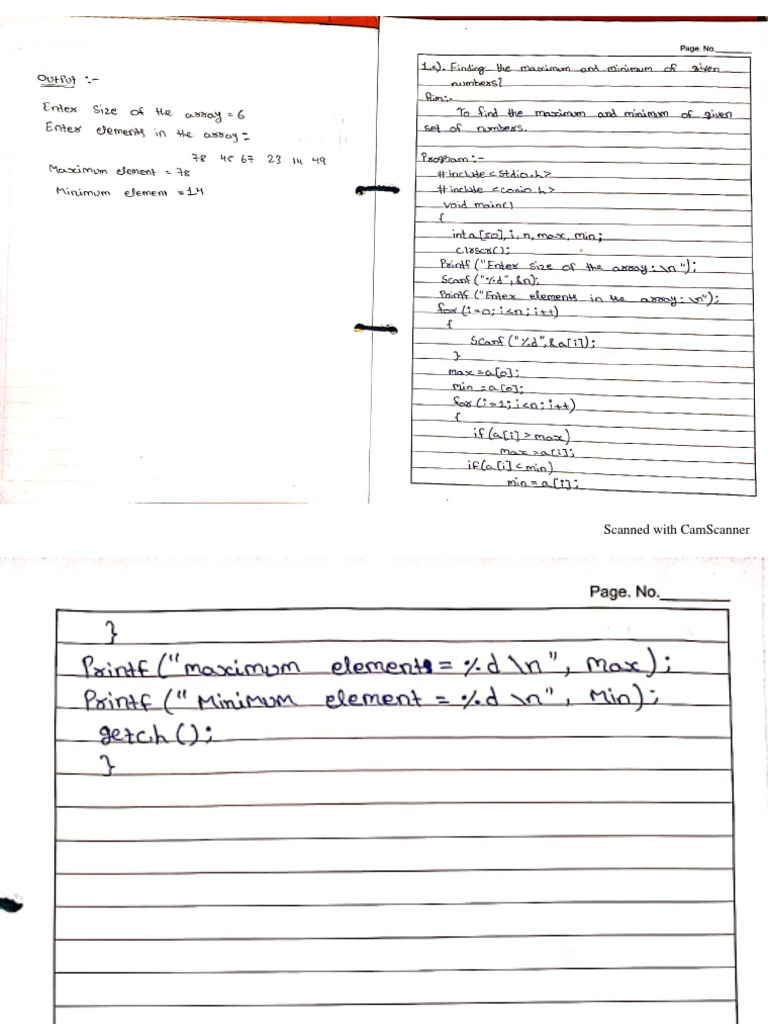 Output :-
Enter Size of the array = 6
Enter elements in the array =
78 45 67 23 14 49
Maximum element = 78
Minimum element = 14
Page. No.
1.a). Finding the maximum and minimum of given
numbers?
Aim:-
To find the maximum and minimum of given
set of numbers.
Program:-
#include <Stdio.h>
#include <conio.h>
void main()
{
int a[50], i, n, max, min;
clrscr();
Printf ("Enter size of the array: \n");
Scanf ("%d", &n);
Printf ("Enter elements in the array: \n");
for (i=0; i<n; i++)
{
Scanf ("%d", &a[i]);
}
max = a[0];
min = a[0];
for (i=1; i<n; i++)
{
if (a[i] > max)
max = a[i];
if (a[i] < min)
min = a[i];
Scanned with CamScanner
Page. No.
}
Printf ("maximum element = %d \n", max);
Printf ("Minimum element = %d \n", Min);
getch ();
}